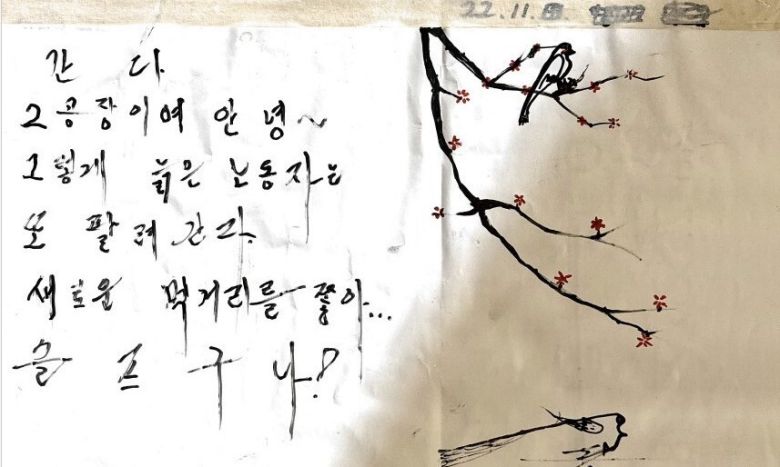 22.11.
간 다
2공장이여 안녕~
그렇게 늙은 노동자는
또 팔려간다.
새로운 먹거리를 쫓아...
슬 프 구 나!